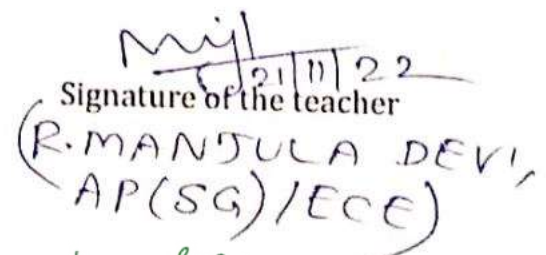 21/11/22
Signature of the teacher
(R.MANJULA DEVI,
AP(SG)/ECE)